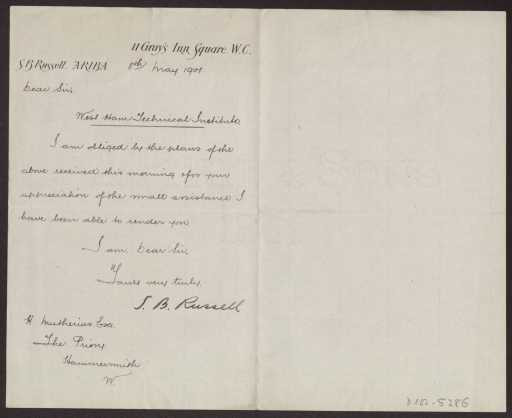 11 Gray's Inn Square. W.C.
S.B. Russell. A.R.I.B.A.
8th May 1901
Dear Sir
West Ham Technical Institute
I am obliged by the plans of the
above received this morning & for your
appreciation of the small assistance I
have been able to render you
I am Dear Sir
Yours very truly
S. B. Russell
H. Muthesius Esq
The Priory
Hammersmith
W.
D102-5286